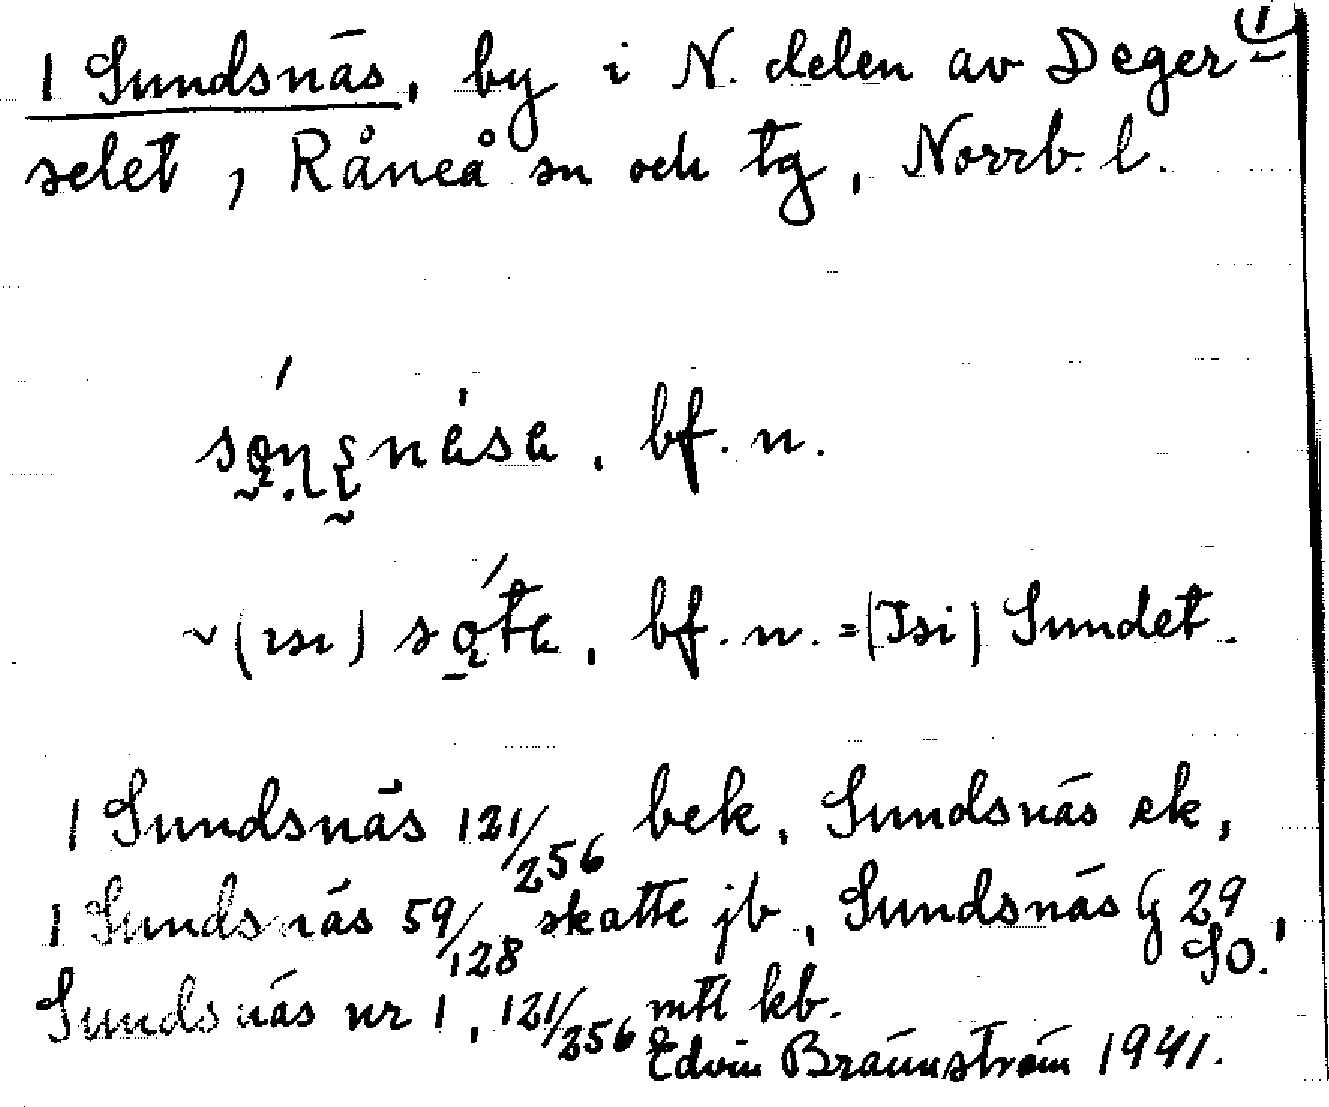 1 Sundsnäs, by i N. delen av Deger- 1)
selet, Råneå sn och tg, Norrb. l.
bf. n.
~ (ısı) bf. n. = (Isi) Sundet.
1 Sundsnäs 121/256 bek, Sundsnäs ek,
1 Sundsnäs 59/128 skatte jb, Sundsnäs G 29 SO.,
Sundsnäs nr 1, 121/256 mtl kb.
Edvin Brännström 1941.